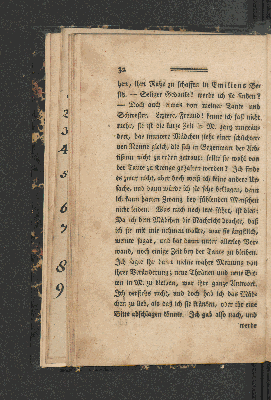 32
hen, ihre Ruhe zu schaffen in Emiliens Be-
sitz. — Seliger Gedanke! werde ich sie finden?
— Noch auch etwas von meiner Tante und
Schwester. Letztere, Freund! kenne ich fast nicht
mehr, sie ist die kurze Zeit in M. ganz umgeän-
dert, das muntere Mädchen sieht einer schüchter-
nen Nonne gleich, die sich in Gegenwart der Aeb-
tißinn nicht zu reden getraut; sollte sie wohl von
der Tante zu strenge gehalten werden? Ich finde
es zwar nicht, aber doch weiß ich keine andere Ur-
sache, und dann würde ich sie sehr beklagen, denn
ich kann harten Zwang bey fühlenden Menschen
nicht leiden. Was mich noch irre führt, ist dies:
Da ich dem Mädchen die Nachricht brachte, daß
sie mit mir nehmen wollte, war sie ängstlich,
weinte sogar, und bat dann unter allerley Vor-
wand, noch einige Zeit bey der Tante zu bleiben.
Ich sagte ihr dann meine wahre Meinung von
ihrer Veränderung; neue Thränen und neue Bit-
ten in M. zu bleiben, war ihre ganze Antwort.
Ich verstehs nicht, und doch hab ich das Mäd-
chen zu lieb, als daß ich sie kränken, oder ihr eine
Bitte abschlagen könnte. Ich gab also nach, und
werde
2
3
4
5
6
7
8
9